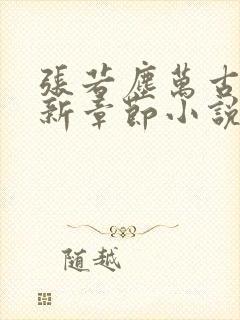 張若塵萬古
新章節小說
随越